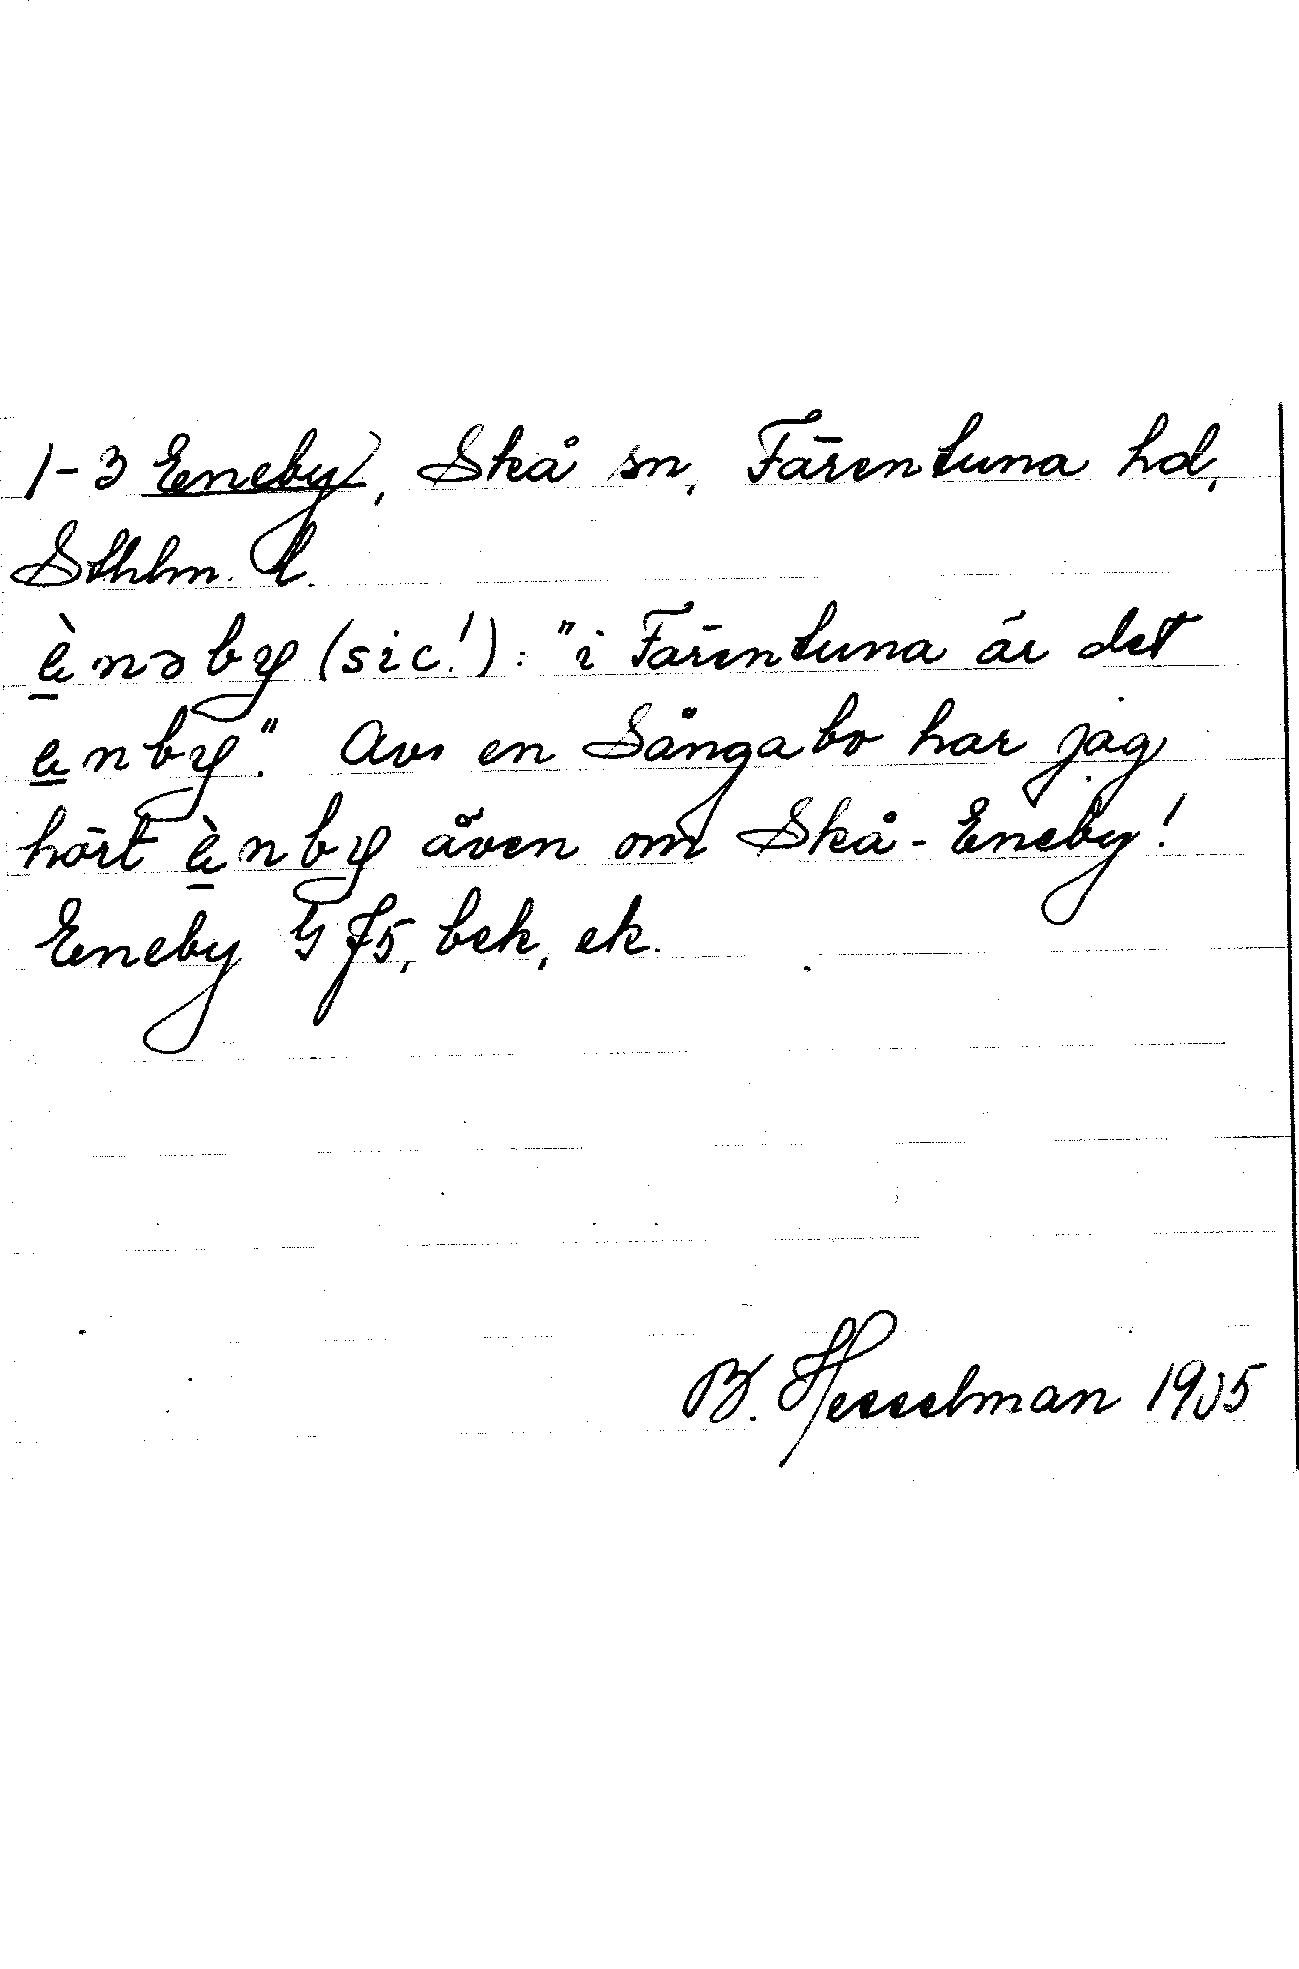 1-3 Eneby, Skå sn, Färentuna hd,
Sthlm. l.
è̱nəby (sic!): "i Färentuna är det
e̱nby". Av en Sångabo har jag
hört è̱nby även om Skå-Eneby!
Eneby GJ5, bek, ek.
B. Hesselman 1905